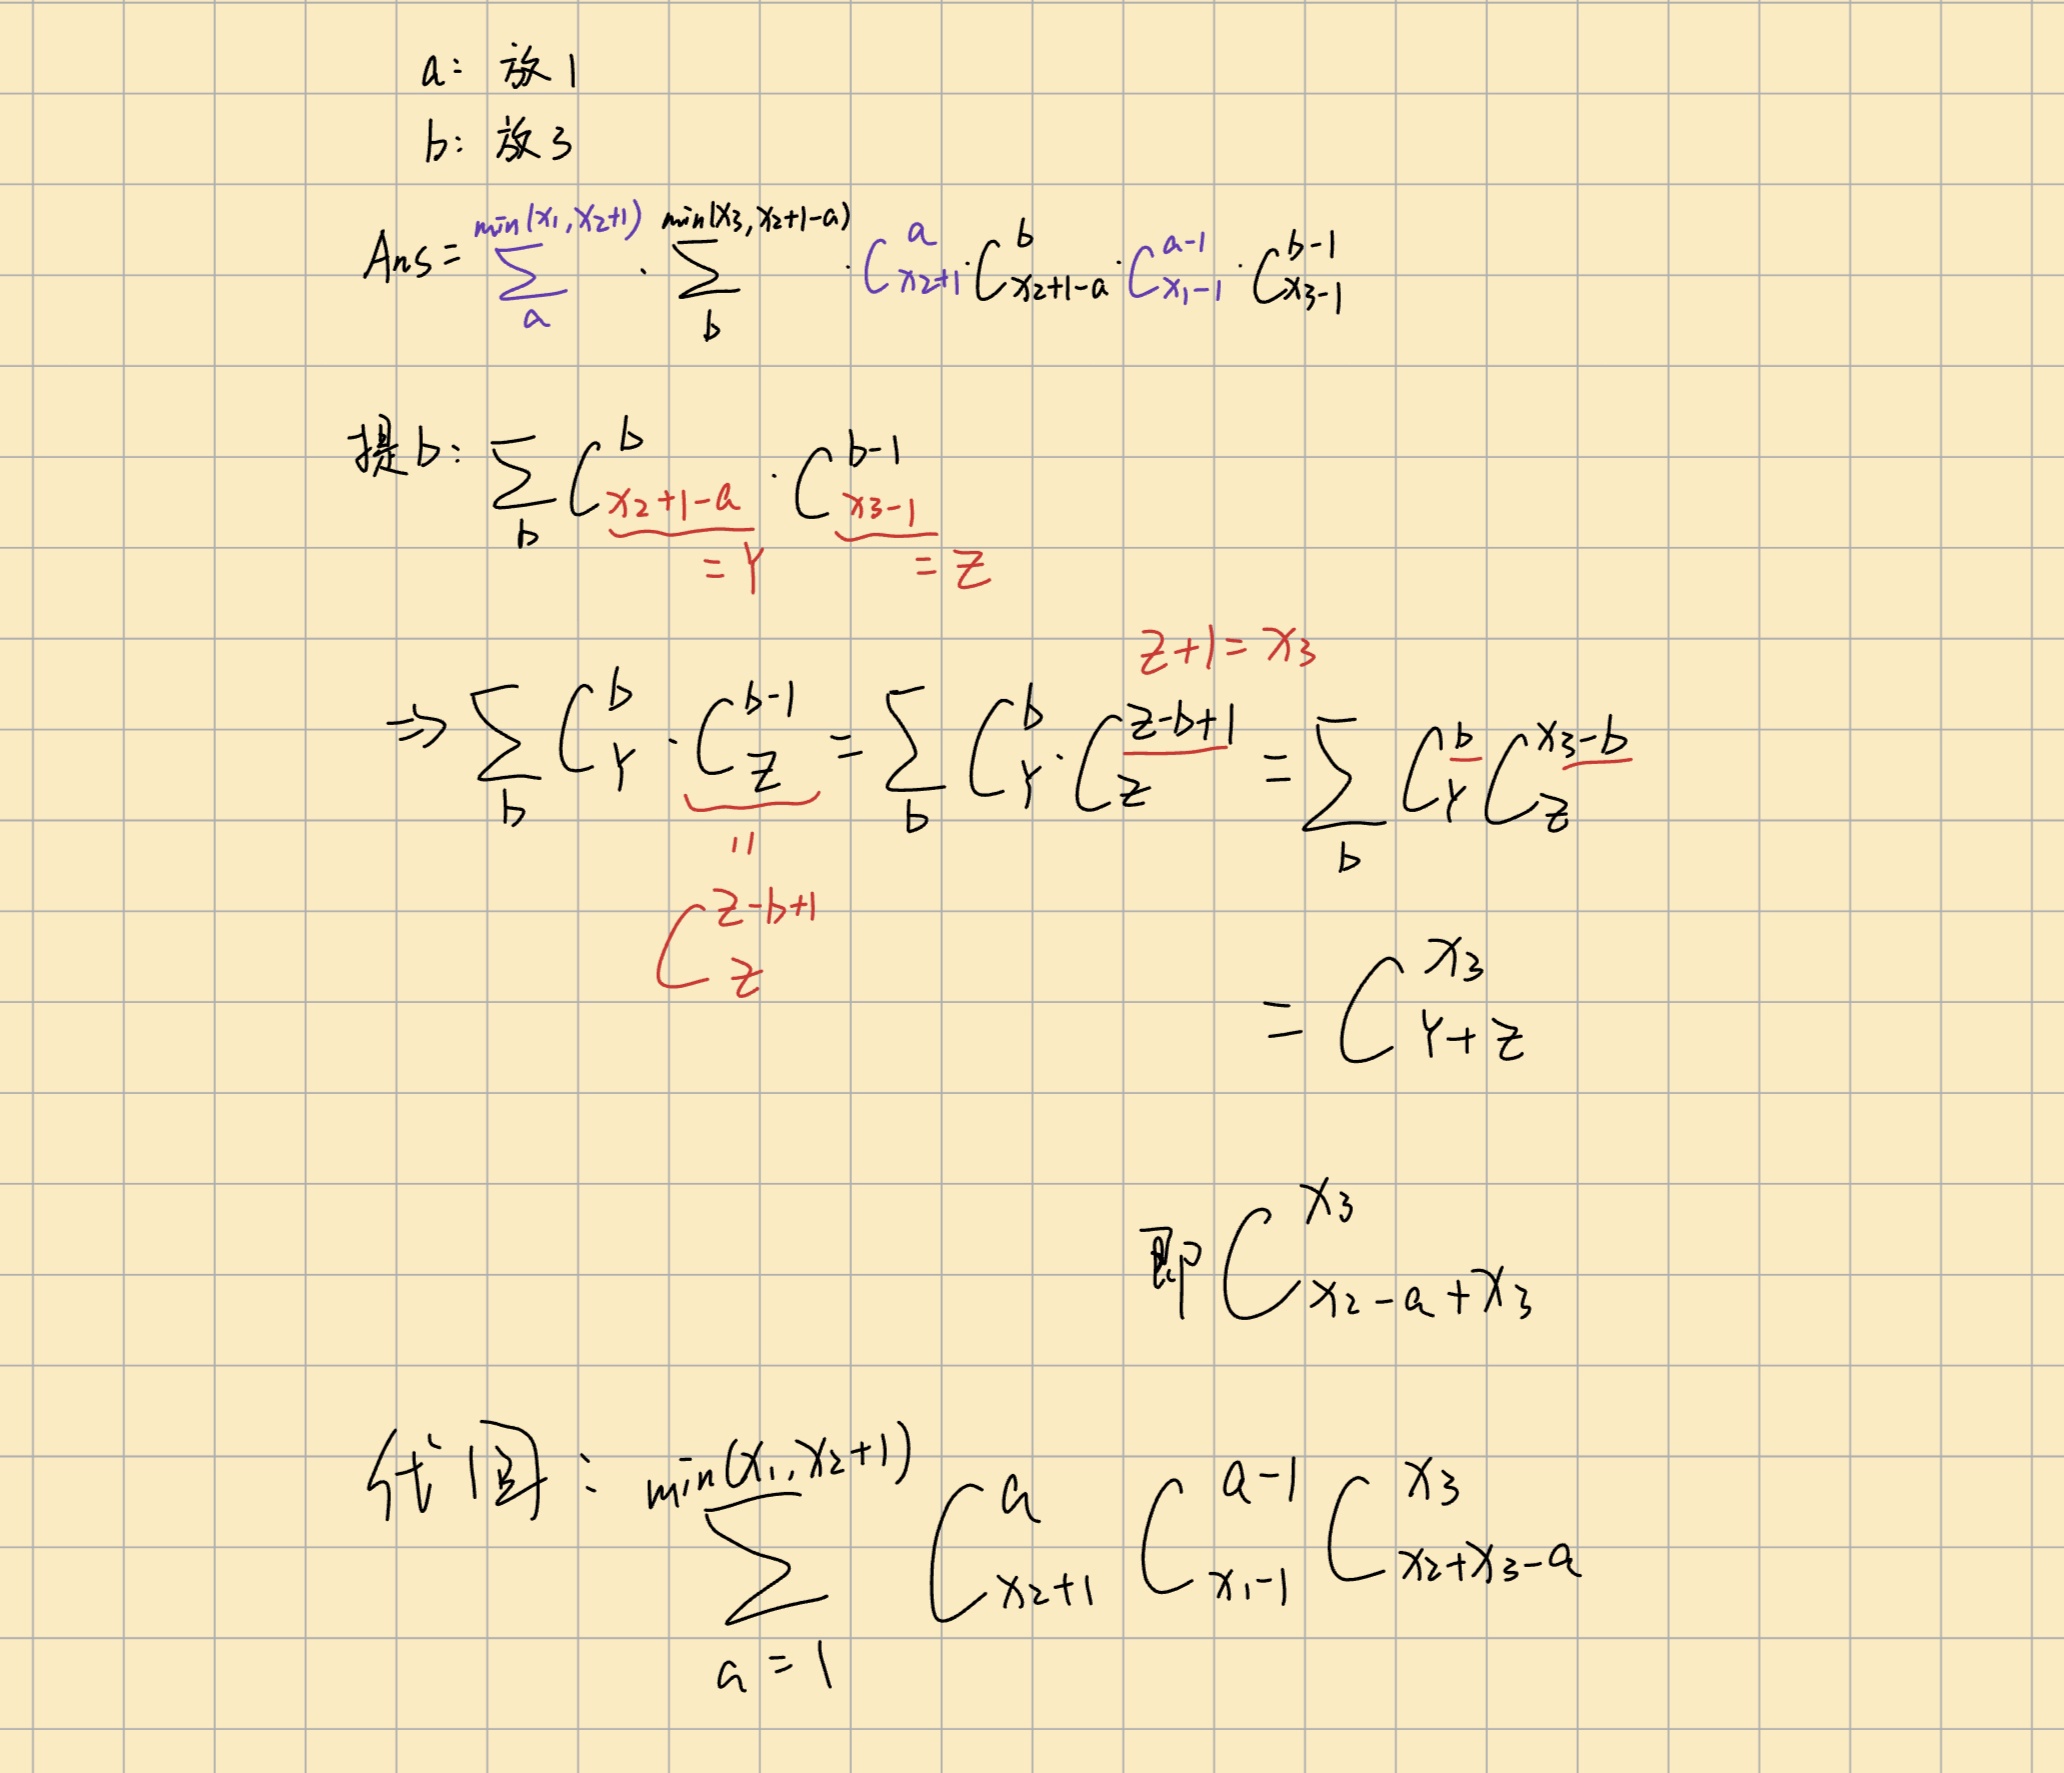 a: 放1
b: 放3
Ans = \sum_{a}^{min(x_1, x_2+1)} \cdot \sum_{b}^{min(x_3, x_2+1-a)} \cdot C_{x_2+1}^{a} \cdot C_{x_2+1-a}^{b} \cdot C_{x_1-1}^{a-1} \cdot C_{x_3-1}^{b-1}
提b: \sum_{b} C_{x_2+1-a}^{b} \cdot C_{x_3-1}^{b-1}
= Y = Z
Z+1 = x_3
⇒ \sum_{b} C_{Y}^{b} \cdot C_{Z}^{b-1} = \sum_{b} C_{Y}^{b} \cdot C_{Z}^{Z-b+1} = \sum_{b} C_{Y}^{b} C_{Z}^{x_3-b}
=
C_{Z}^{Z-b+1}
= C_{Y+Z}^{x_3}
即 C_{x_2-a+x_3}^{x_3}
代回: \sum_{a=1}^{min(x_1, x_2+1)} C_{x_2+1}^{a} C_{x_1-1}^{a-1} C_{x_2+x_3-a}^{x_3}